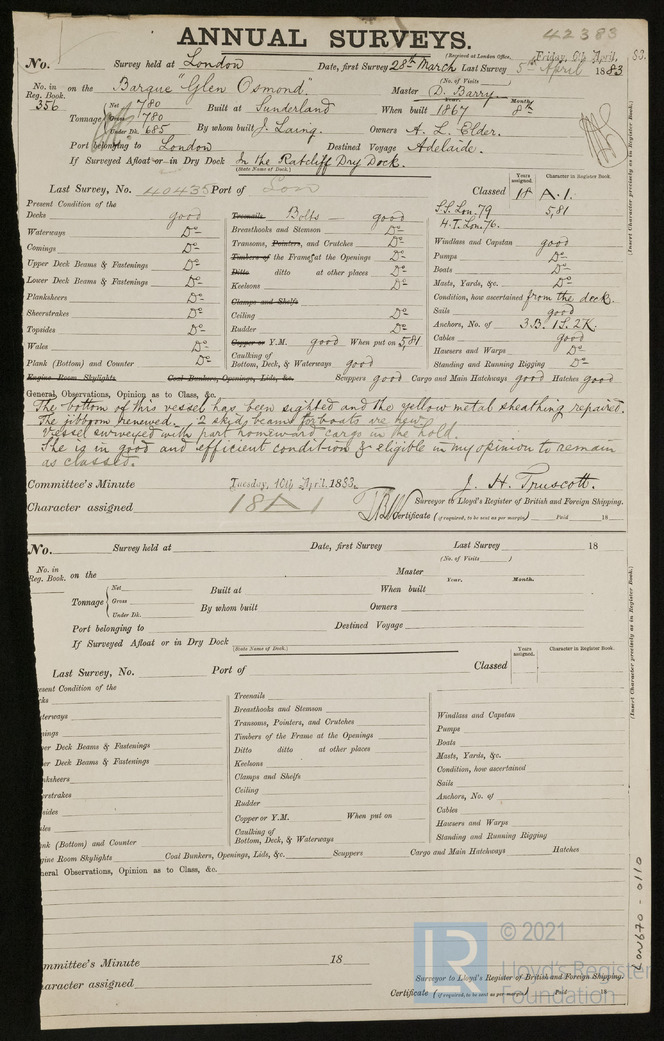 42383
ANNUAL SURVEYS.
(Received at London Office, Friday, 6th April, 83.
No. Survey held at London Date, first Survey 28th March Last Survey 5th April 1883
(No. of Visits )
No. in Reg. Book. 356 on the Barque "Glen Osmond." Master D. Barry
Tonnage Net 780 Gross 780 Under Dk. 685 Built at Sunderland When built Year. 1867 Month. 8th
By whom built J. Laing. Owners A. L. Elder.
Port belonging to London Destined Voyage Adelaide.
If Surveyed Afloat or in Dry Dock In the Ratcliff Dry Dock.
(State Name of Dock.)
Last Survey, No. 40435 Port of Lon Classed Years assigned. 18 Character in Register Book. A.1.
S.S. Lon. 79 5,81
H.T. Lon. 76.
Present Condition of the
Decks good
Waterways Do
Comings Do
Upper Deck Beams & Fastenings Do
Lower Deck Beams & Fastenings Do
Planksheers Do
Sheerstrakes Do
Topsides Do
Wales Do
Plank (Bottom) and Counter Do
Treenails. Bolts good
Breasthooks and Stemson Do
Transoms, Pointers, and Crutches Do
Timbers of the Frame at the Openings Do
Ditto ditto at other places Do
Keelsons Do
Clamps and Shelfs
Ceiling Do
Rudder Do
Copper or Y.M. good When put on 5,81
Caulking of Bottom, Deck, & Waterways good
Windlass and Capstan good
Pumps Do
Boats Do
Masts, Yards, &c. Do
Condition, how ascertained from the deck.
Sails good
Anchors, No. of 3.B. 1S. 2K.
Cables good
Hawsers and Warps Do
Standing and Running Rigging Do
Engine Room Skylights Coal Bunkers, Openings, Lids, &c. Scuppers good Cargo and Main Hatchways good Hatches good
General Observations, Opinion as to Class, &c.
The bottom of this vessel has been sighted and the yellow metal sheathing repaired.
The jibboom renewed. 2 skid beams for boats are new.
Vessel surveyed with part homeward cargo in the hold.
She is in good and efficient condition & eligible in my opinion to remain
as classed.
Committee's Minute Tuesday, 10th April, 1883. J. H. Truscott.
Character assigned 18 A 1 Surveyor to Lloyd's Register of British and Foreign Shipping.
Certificate (if required, to be sent as per margin) Paid 18
(Insert Character precisely as in Register Book.)
No. Survey held at Date, first Survey Last Survey 18
(No. of Visits )
No. in Reg. Book. on the Master
Tonnage Net Gross Under Dk. Built at When built Year. Month.
By whom built Owners
Port belonging to Destined Voyage
If Surveyed Afloat or in Dry Dock
(State Name of Dock.)
Last Survey, No. Port of Classed Years assigned. Character in Register Book.
sent Condition of the
cks
terways
ings
per Deck Beams & Fastenings
er Deck Beams & Fastenings
nksheers
erstrakes
sides
les
nk (Bottom) and Counter
Treenails
Breasthooks and Stemson
Transoms, Pointers, and Crutches
Timbers of the Frame at the Openings
Ditto ditto at other places
Keelsons
Clamps and Shelfs
Ceiling
Rudder
Copper or Y.M. When put on
Caulking of Bottom, Deck, & Waterways
Windlass and Capstan
Pumps
Boats
Masts, Yards, &c.
Condition, how ascertained
Sails
Anchors, No. of
Cables
Hawsers and Warps
Standing and Running Rigging
gine Room Skylights Coal Bunkers, Openings, Lids, &c. Scuppers Cargo and Main Hatchways Hatches
neral Observations, Opinion as to Class, &c.
(Insert Character precisely as in Register Book.)
LON670-0110
ommittee's Minute 18
haracter assigned Surveyor to Lloyd's Register of British and Foreign Shipping.
Certificate (if required, to be sent as per margin) Paid 18
LR
© 2021
Lloyd's Register
Foundation